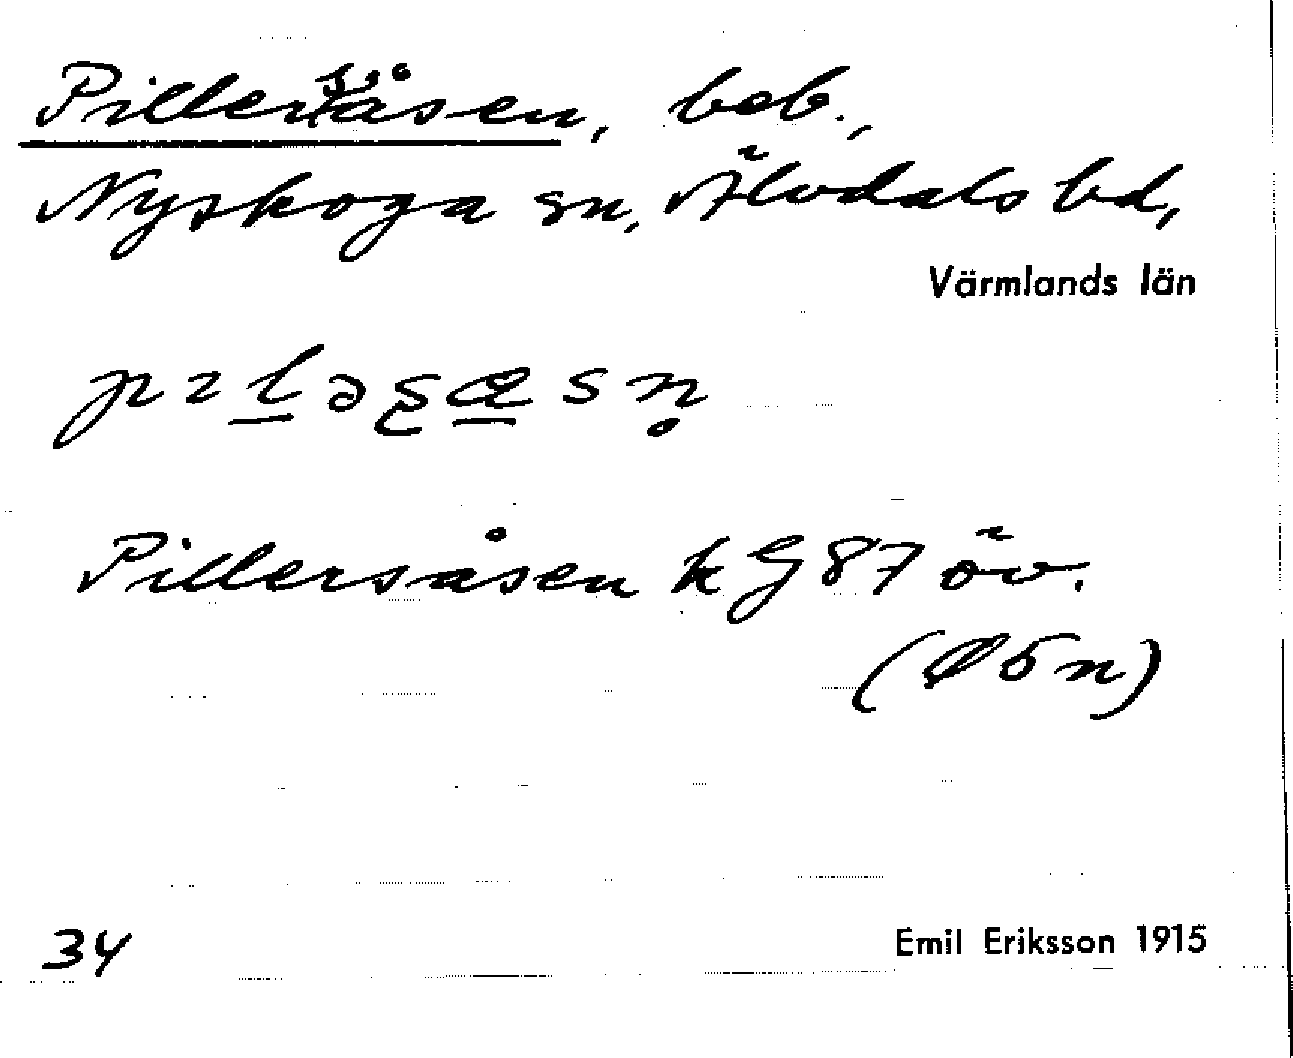 Pillersåsen, beb.,
Nyskoga sn, Älvdals hd,
Värmlands län
Pillersåsen k G 87 öv.
(Ö ö n)
34
Emil Eriksson 1915